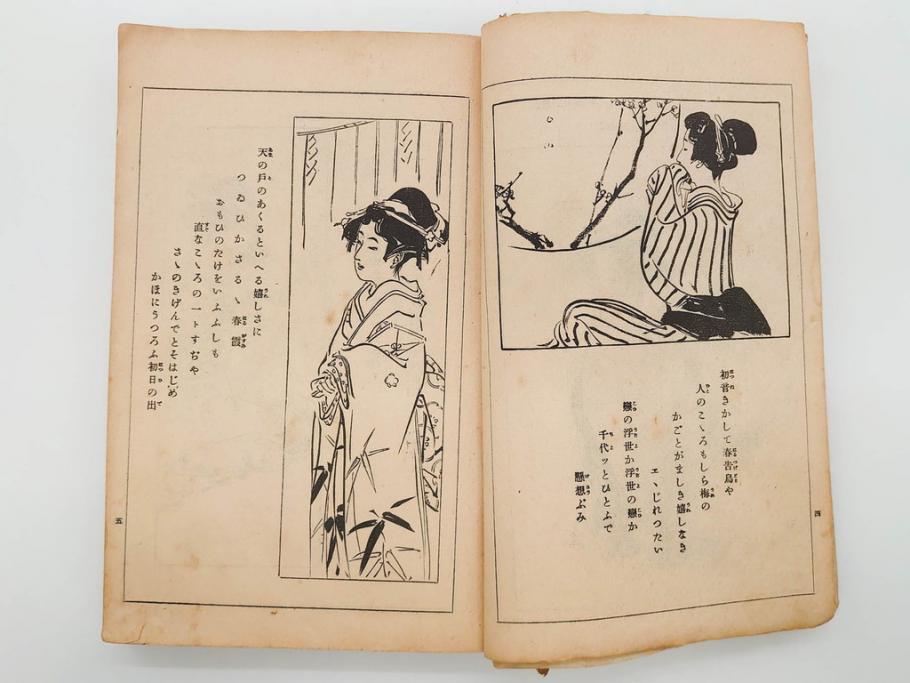 初音きかして春告鳥や
人のこゝろもしら梅の
かごとがましき嬉しなき
エヽじれつたい
戀の浮世か浮世の戀か
千代ッとひとふで
懸想ぶみ
四
天の戸のあくるといへる嬉しさに
つゐひかさるゝ春霞
おもひのたけをいふふしも
直なこゝろの一トすぢや
さゝのきげんでとそはじめ
かほにうつろふ初日の出
五